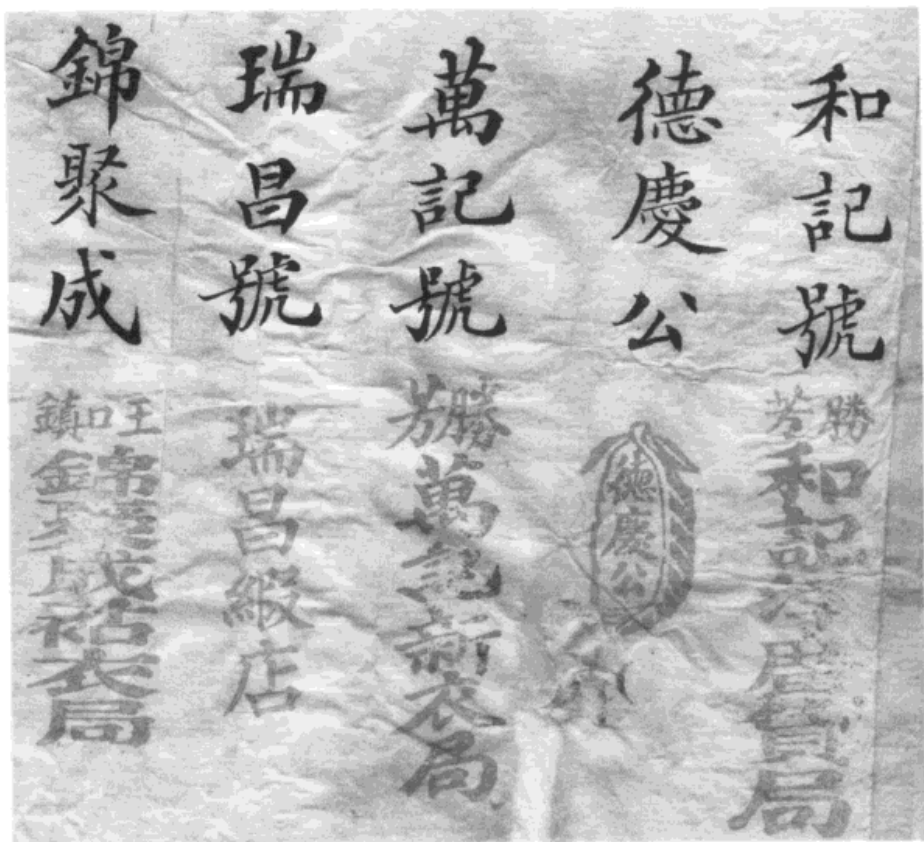 和記號
勝芳
和記
局
德慶公
德慶公
萬記號
勝芳
萬記新衣局
瑞昌號
瑞昌緞店
錦聚成
王口鎮
錦聚成估衣局